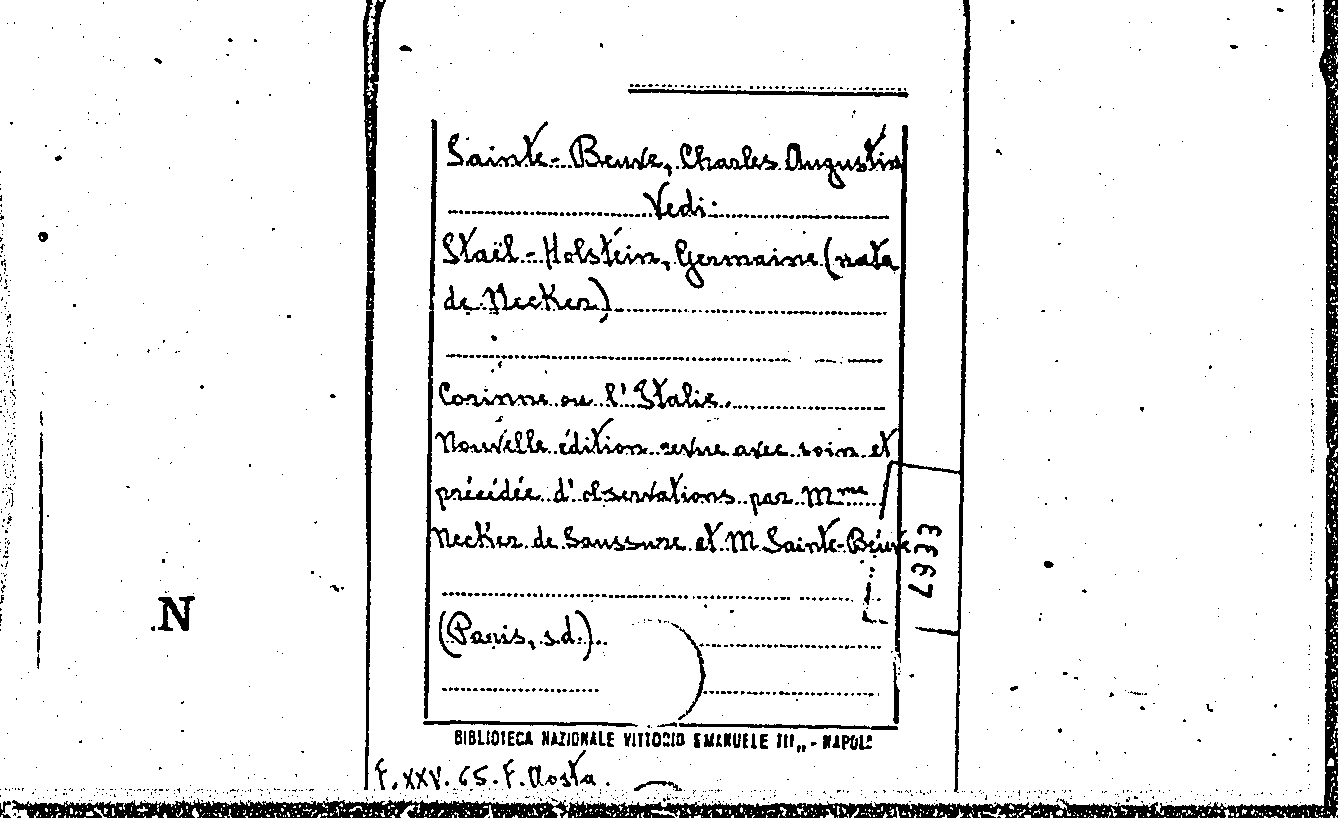 Sainte-Beuve, Charles Augustin
Vedi:
Staël-Holstein, Germaine (nata
de Necker)
Corinne ou l'Italie.
Nouvelle édition revue avec soin et
précédée d'observations par Mme
Necker de Saussure et M Sainte-Beuve
(Paris, s.d.).
BIBLIOTECA NAZIONALE VITTORIO EMANUELE III„ - NAPOLI
F. XXV. 65. F. Aosta.
N